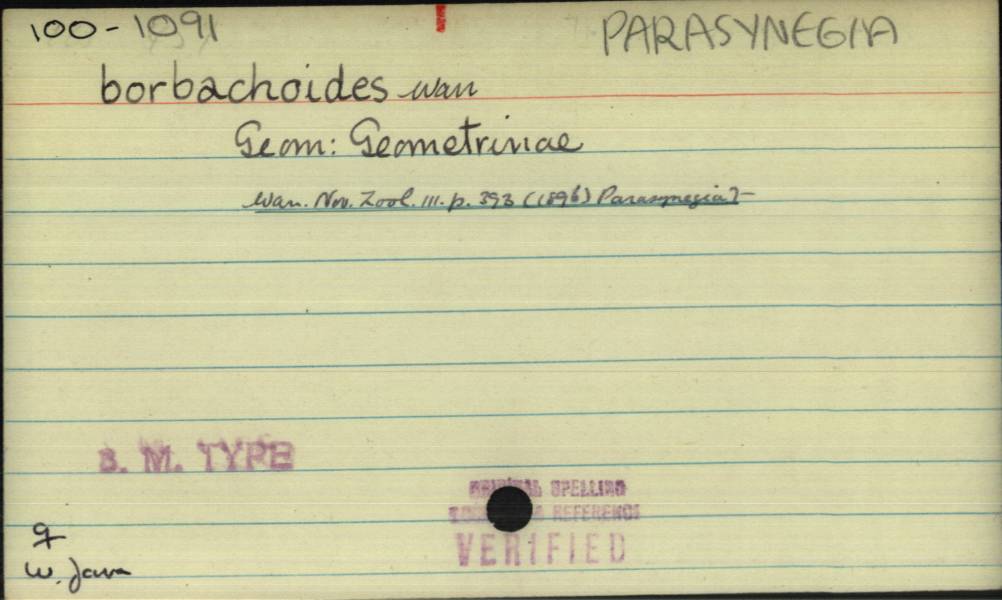 100-1091 PARASYNEGIA
borbachoides Warr
Geom: Geometrinae
Warr. Nov. Zool. III. p. 393 (1896) Parasynegia?-
B. M. TYPE
ORIGINAL SPELLING
REFERENCE
VERIFIED
♀
W. Java